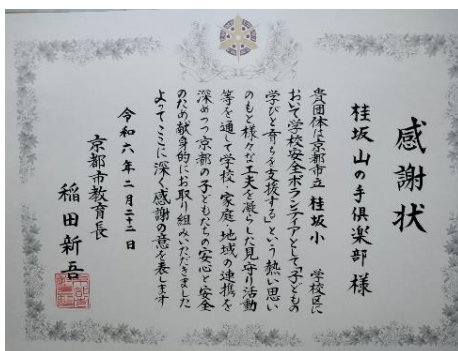 感謝状
桂坂山の手倶楽部 様
貴団体は京都市立 桂坂小 学校区に
おいて学校安全ボランティアとして「子どもの
学びと育ちを支援する」という熱い思い
のもと様々な工夫を凝らした見守り活動
等を通して学校・家庭・地域の連携を
深めつつ京都の子どもたちの安心と安全
のため献身的にお取り組みいただきました
よってここに深く感謝の意を表します
令和六年二月二十二日
京都市教育長
稲田新吾